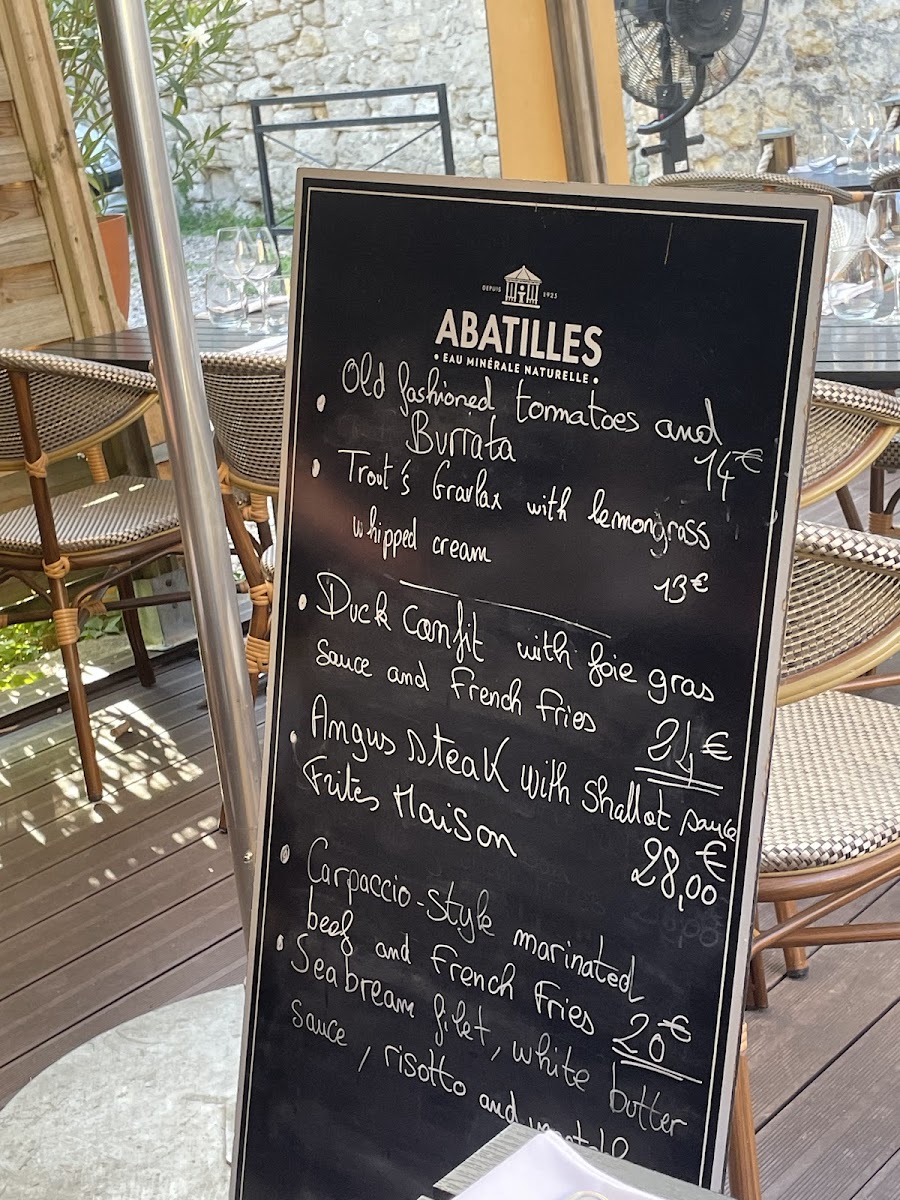 DEPUIS 1925
ABATILLES
• EAU MINÉRALE NATURELLE •
• Old fashioned tomatoes and
Burrata 14€
• Trout's Gravlax with lemongrass
whipped cream 13€
• Duck Confit with foie gras
sauce and French Fries 24€
• Angus steak with Shallot sauce
Frites Maison 28,00€
• Carpaccio-style marinated
beef and French Fries 20€
• Seabream filet, white butter
sauce, risotto and